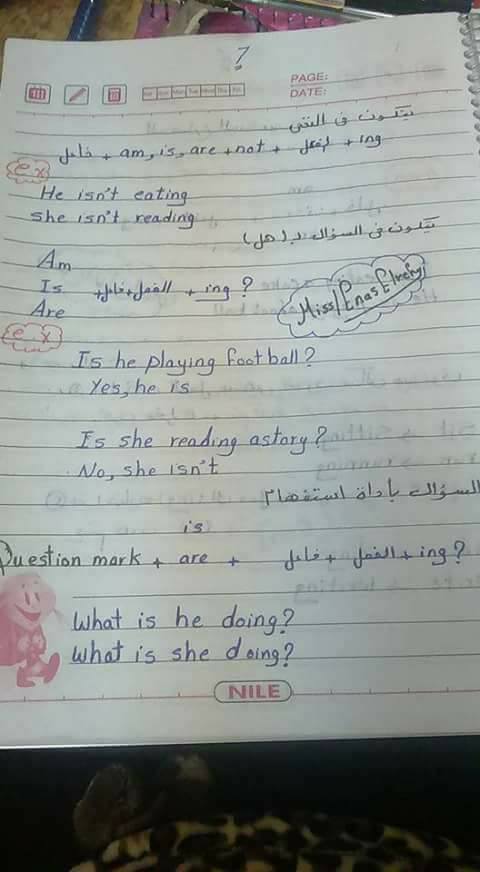 7
PAGE:
DATE:
يتكون فى النفى
فاعل + am, is, are + not + الفعل + ing
ex
He isn't eating
she isn't reading
يتكون فى السؤال بـ (هل)
Am
Is + فاعل + الفعل + ing ?
Are
Miss/Enas Elrefy
ex
Is he playing football?
Yes, he is
Is she reading astory?
No, she isn't
السؤال بأداة استفهام
is
Question mark + are + فاعل + الفعل + ing ?
What is he doing?
What is she doing?
NILE